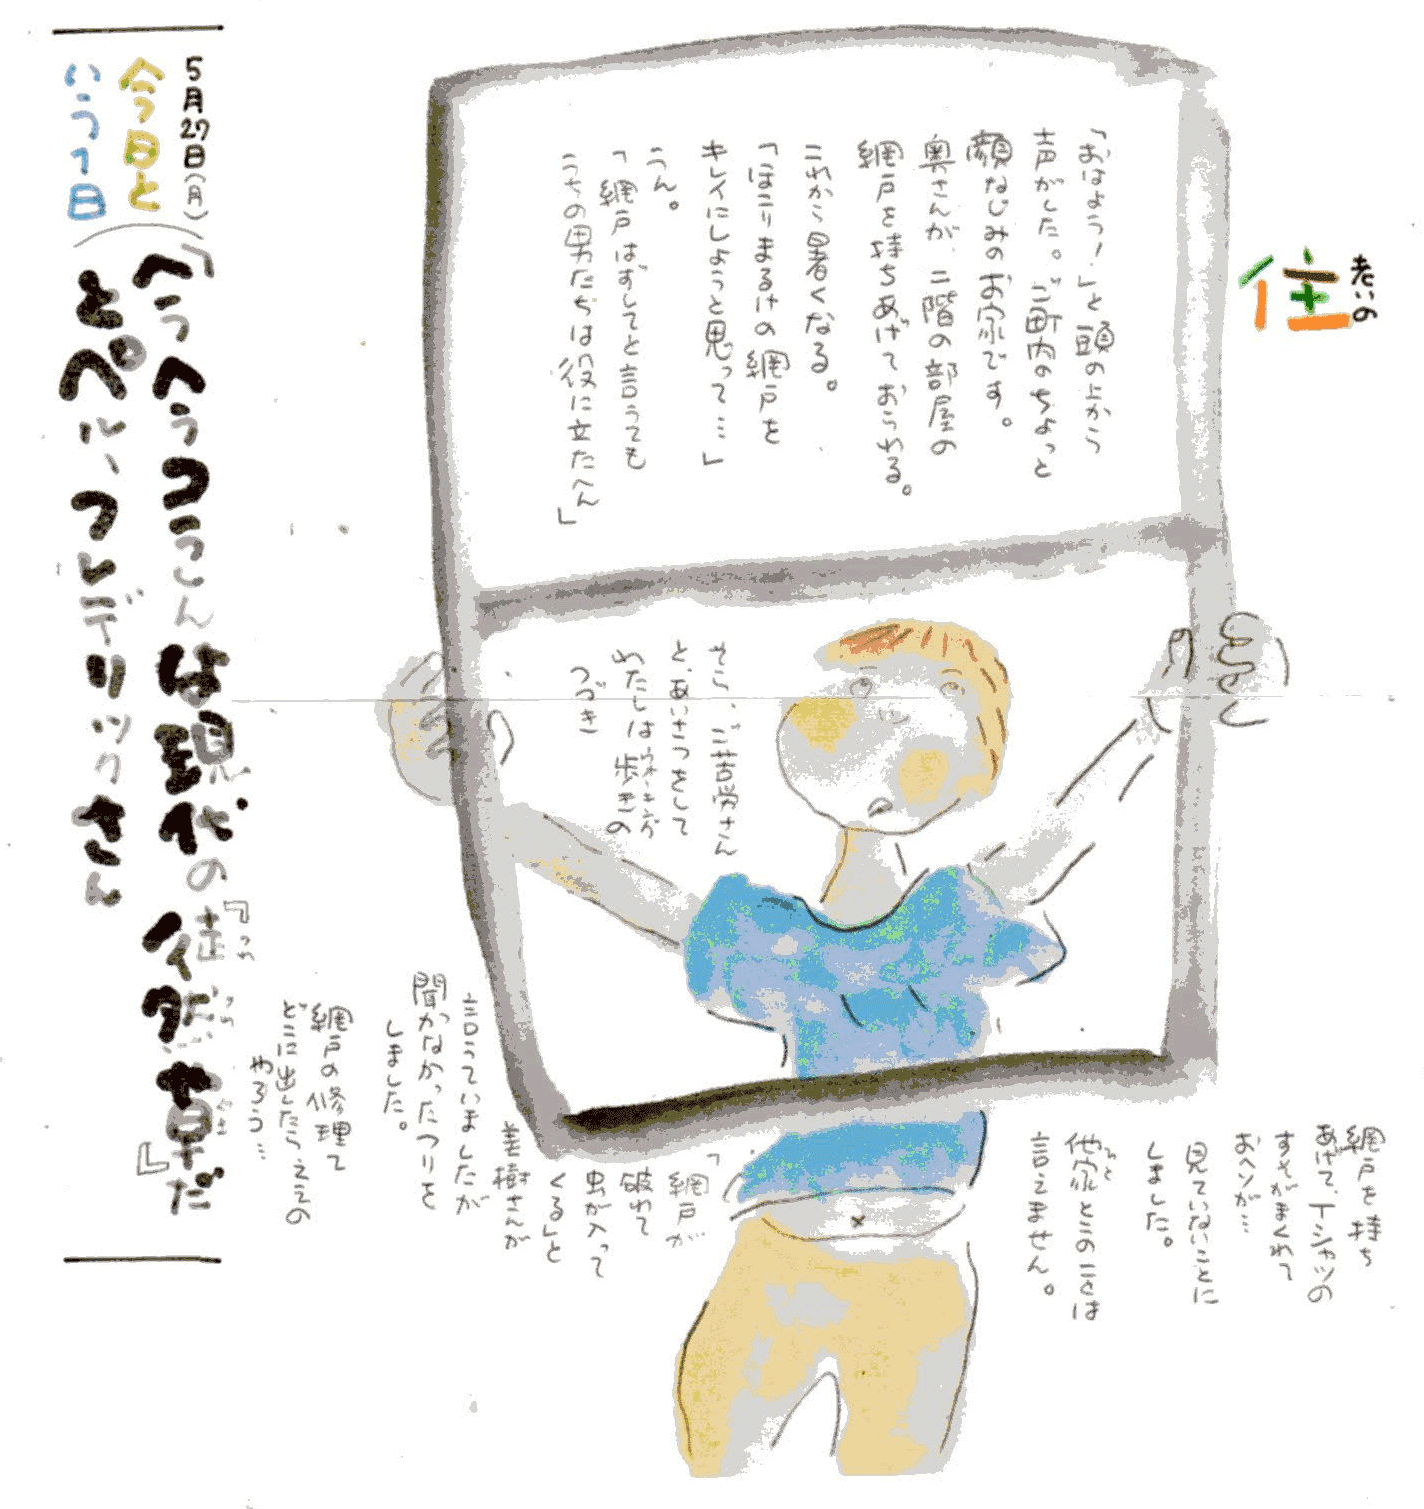 老いの
住
「おはよう！」と頭の上から
声がした。ご町内のちょっと
顔なじみのお家です。
奥さんが、二階の部屋の
網戸を持ちあげておられる。
これから暑くなる。
「ほこりまるけの網戸を
キレイにしようと思って…」
うん。
「網戸はずしてと言うても
うちの男たちは役に立たへん」
そら、ご苦労さん
と、あいさつをして
わたしは歩きの
ウォーキング
つづき
網戸を持ち
あげて、Tシャツの
すそがまくれて
おヘソが…
見ていないことに
しました。
他家とこのことは
よそ
言えません。
「網戸が
破れて
虫が入って
くる」と
美樹さんが
言うていましたが
聞かなかったつりを
しました。
網戸の修理て
どこに出したらええの
やろう…
5月27日（月）
今日と
いう1日
「へうへうコラしんは現代の『徒然草』だ
つれづれぐさ
とペール、フレデリックさん